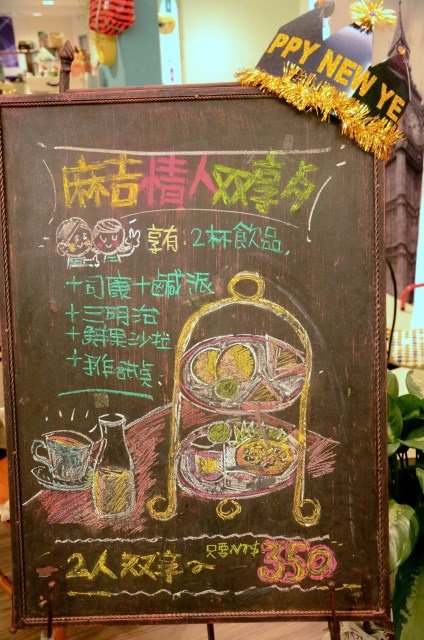 PPY NEW YE
麻吉情人双享点
享有 2杯飲品,
+司康+鹹派
+三明治
+鮮果沙拉
+手作甜点
2人双享
只要NT$ 350